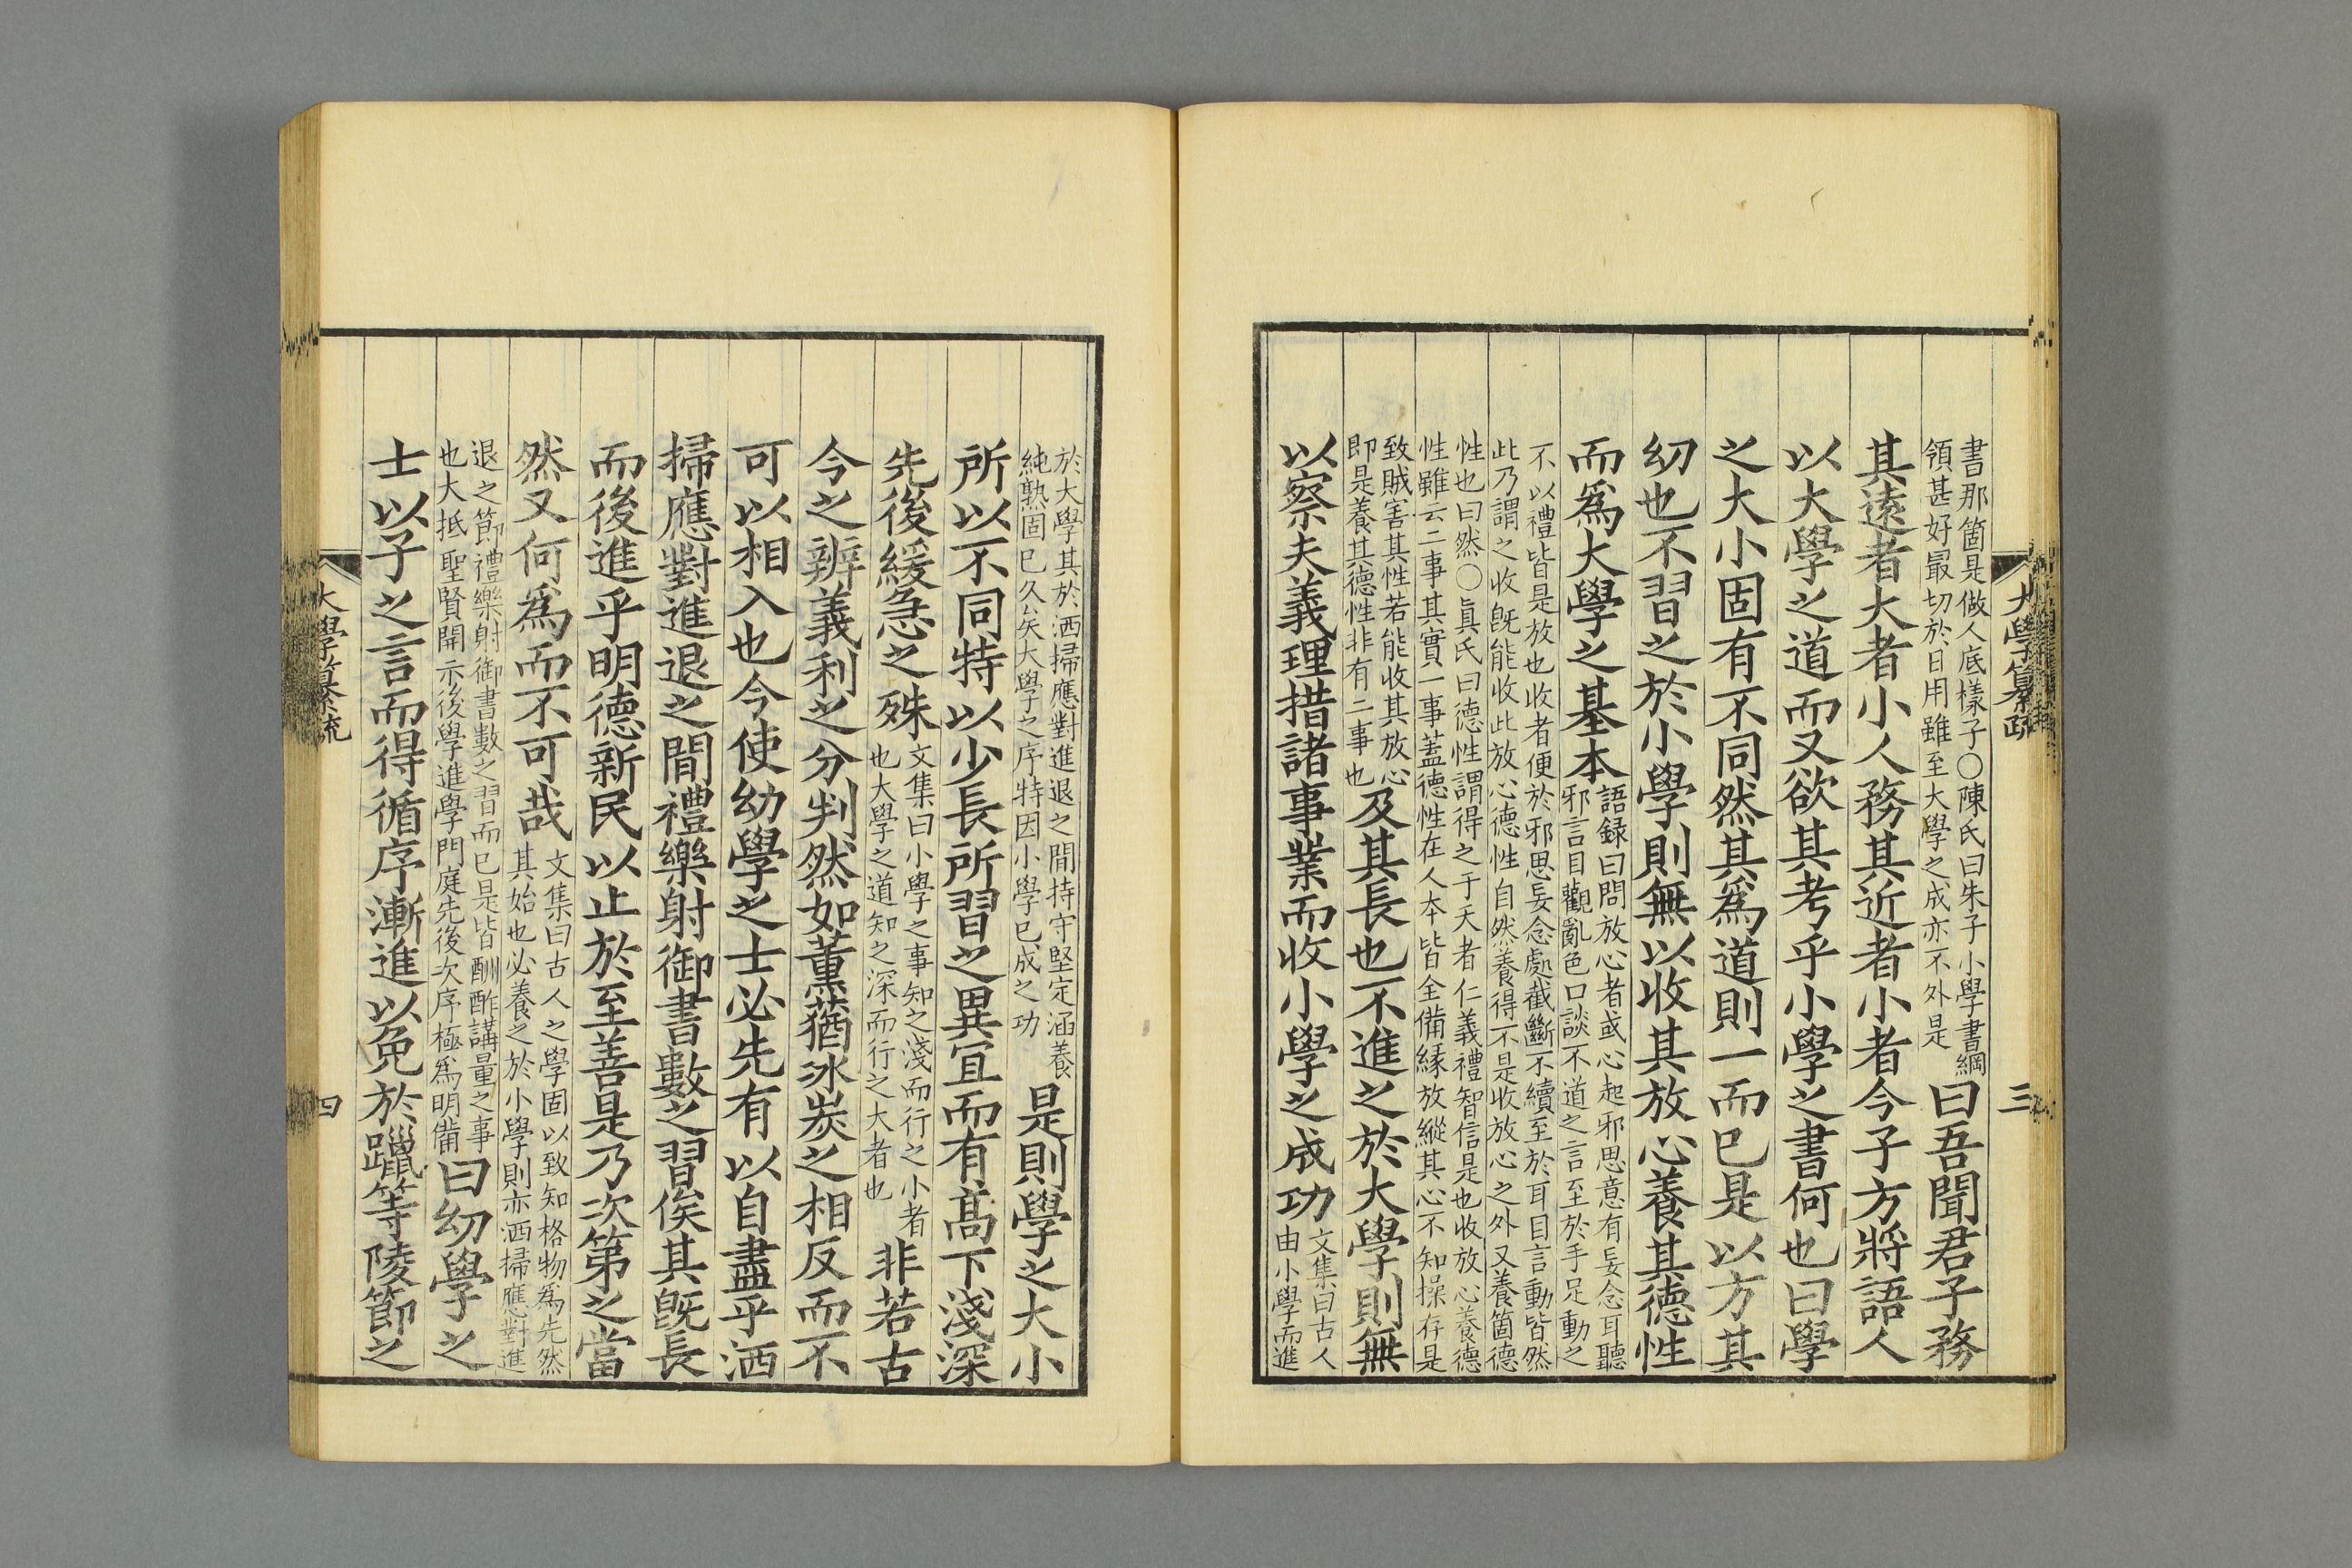 大學纂疏 三
書那箇是做人底樣子〇陳氏曰朱子小學書綱
領甚好最切於日用雖至大學之成亦不外是
曰吾聞君子務
其遠者大者小人務其近者小者今子方將語人
以大學之道而又欲其考乎小學之書何也曰學
之大小固有不同然其爲道則一而已是以方其
幼也不習之於小學則無以收其放心養其德性
而爲大學之基本
語録曰問放心者或心起邪思意有妄念耳聽
邪言目觀亂色口談不道之言至於手足動之
不以禮皆是放也收者便於邪思妄念處截斷不續至於耳目言動皆然
此乃謂之收旣能收此放心德性自然養得不是收放心之外又養箇德
性也曰然〇眞氏曰德性謂得之于天者仁義禮智信是也收放心養德
性雖云二事其實一事蓋德性在人本皆全備緣放縱其心不知操存是
致賊害其性若能收其放心
即是養其德性非有二事也
及其長也不進之於大學則無
以察夫義理措諸事業而收小學之成功
文集曰古人
由小學而進
於大學其於洒掃應對進退之間持守堅定涵養
純熟固已久矣大學之序特因小學已成之功
是則學之大小
所以不同特以少長所習之異宜而有高下淺深
先後緩急之殊
文集曰小學之事知之淺而行之小者
也大學之道知之深而行之大者也
非若古
今之辨義利之分判然如薰蕕冰炭之相反而不
可以相入也今使幼學之士必先有以自盡乎洒
掃應對進退之間禮樂射御書數之習俟其旣長
而後進乎明德新民以止於至善是乃次第之當
然又何爲而不可哉
文集曰古人之學固以致知格物爲先然
其始也必養之於小學則亦洒掃應對進
退之節禮樂射御書數之習而已是皆酬酢講量之事
也大抵聖賢開示後學進學門庭先後次序極爲明備
曰幼學之
士以子之言而得循序漸進以免於躐等陵節之
大學纂疏 四